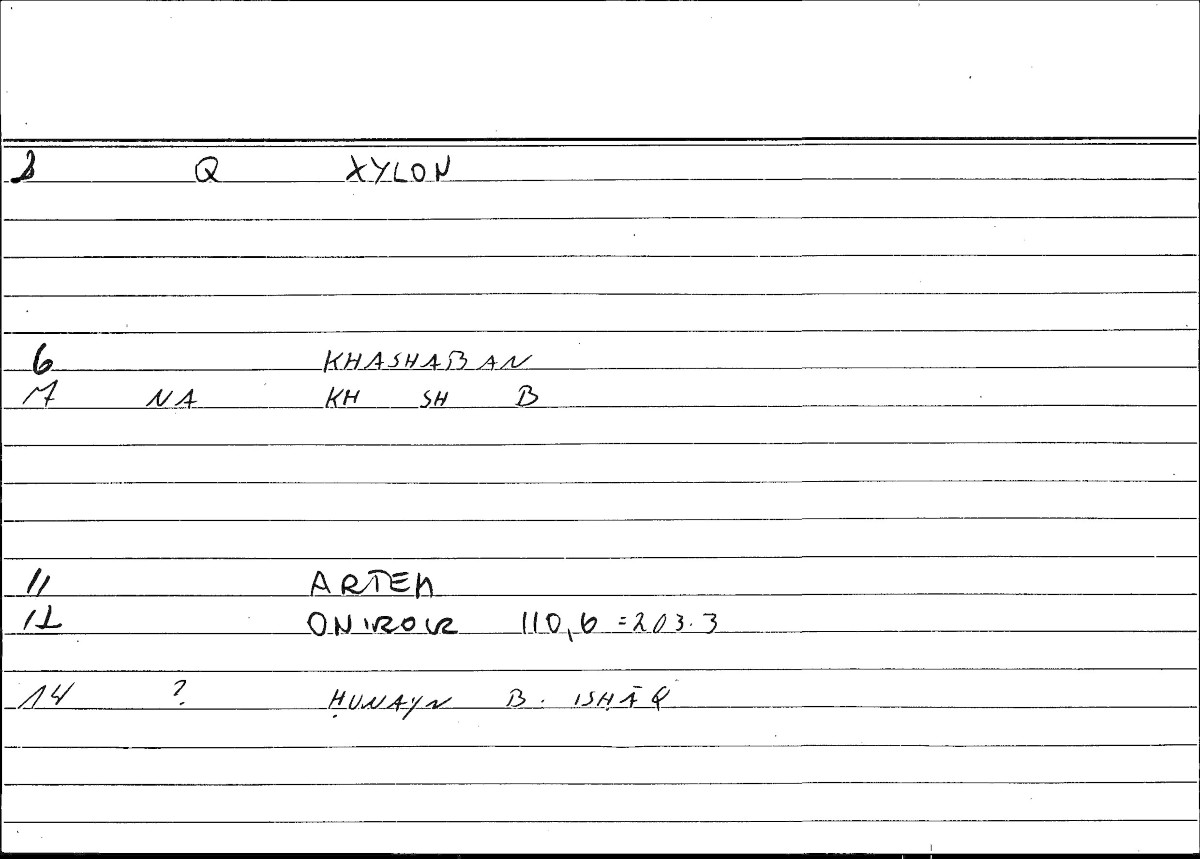 2 Q XYLON
6 KHASHABAN
7 NA KH SH B
11 ARTEM
12 ONIROCR 110,6 = 203.3
14 ? ḤUNAYN B. ISḤĀQ